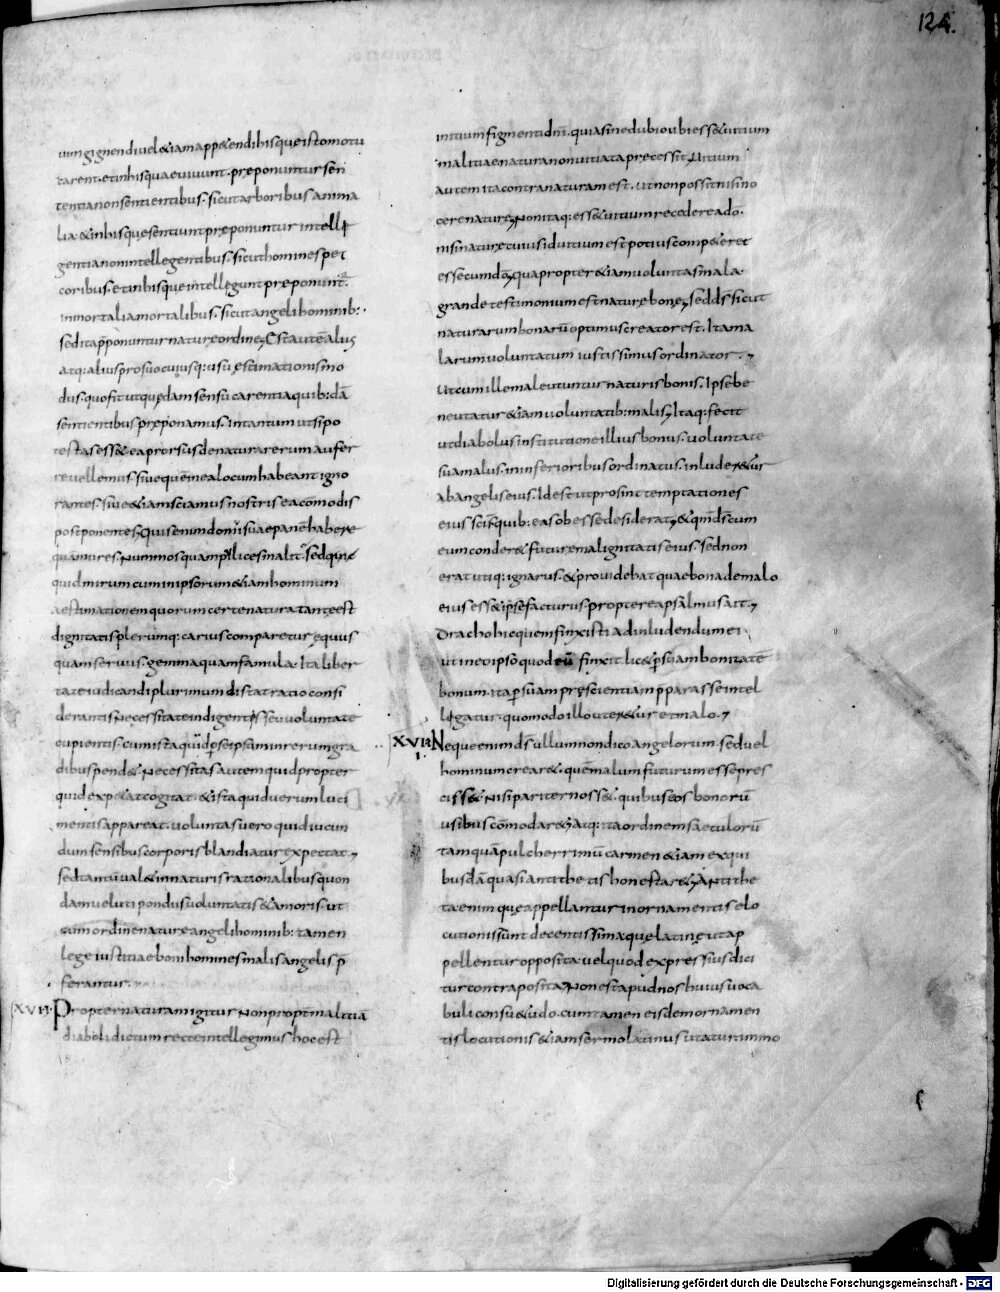 124.
uim gignendi uel &iam app&endi his que isto motu
carent. et in his quae uiuunt. preponuntur sen
tentia non sentientibus. sicut arboribus anima
lia & in his que sentiunt preponuntur intelle
gentia non intellegentibus. sicut homines pe
coribus. et in his que intellegunt preponunt.
inmortalia mortalibus. sicut angeli hominib:
sed ita pponuntur naturę ordine; Est autē alius
atq: alius pro suo cuiusq: usu estimationis mo
dus. quo fit ut quędam sensu carentia quib:dā
sentientibus preponamus. in tantum ut si po
testas ess& ea prorsus de natura rerum aufer
re uellemus. siue quē in ea locum habeant igno
rantes. siue &iam sciamus nostris ea comodis
postponentes. Quis enim non domi suae panē habere
quā mures. nummos quam pulices malit. Sed quid
quid mirum cum in ipsorum &iam hominum
aestimatione quorum certe natura tantę est
dignitatis plerumq: carius comparetur equus
quam seruus. gemma quam famula. Ita liber
tate iudicandi plurimum distat ratio consi
derantis necessitate indigentis seu uoluntate
cupientis. cum ista quid p se ipsum in rerum gra
dibus pend& necessitas autem quid propter
quid expetat cogitat. & ista quid uerum luci
mentis appareat. uoluntas uero quid iucun
dum sensibus corporis blandiatur expectat;
sed tantū ual& in naturis rationalibus quon
dam ueluti pondus uoluntatis & amoris. ut
cum ordine naturę angeli hominib: tamen
lege iustitiae boni homines malis angelis p
ferantur.
XVII. Propter naturam igitur non propt malitia
diaboli dictum recte intellegimus hoc est
initium figmenti dnī. quia sine dubio ubi ess& uitium
malitiae natura non uitiata precessit. Uitium
autem ita contra naturam est. ut non possit nisi no
cere naturę; Non itaq: ess& uitium recedere a dō.
nisi naturę cuius id uitium est potius compet&eret
esse cum dō; quapropter &iam uoluntas mala.
grande testimonium est naturę bonę; sed ds sicut
naturarum bonarū optimus creator est. Ita ma
larum uoluntatum iustissimus ordinator.;
Ut cum ille male utuntur naturis bonis. Ipse be
ne utatur &iam uoluntatib: malis; Itaq: fecit
ut diabolus institutione illius bonus. uoluntate
sua malus. in inferioribus ordinatus. inluder&ur
ab angelis eius. Id est ut prosint temptationes
eius scīs quib: eas obesse desiderat; & qm ds cum
eum conder& futurę malignitatis eius. sed non
erat utiq: ignarus. & prouidebat quae bona de malo
eius ess& ipse facturus. propterea psalmus ait.;
Draco hic quem finxisti ad inludendum ei
ut in eo ipso quod eū finxit. lic& p suam bonitatē
bonum. ita p suam prescientiam pparasse intel
legatur. quomodo illo uter&ur et malo.;
XVIII. Neque enim ds ullum non dico angelorum. sed uel
hominum crear&. quē malum futurum esse pres
ciss& nisi pariter noss&. quibus eos bonorū
usibus cōmodar&; Atq: ita ordinem saeculorū
tamquā pulcherrimū carmen &iam ex qui
busdā quasi antithetis honestar&; Antithe
ta enim quę appellantur in ornamentis elo
cutionis sunt decentissima que latinę ut ap
pellentur opposita. uel quod expressius dici
tur contraposita; Non est apud nos huius uoca
buli consu&udo. cum tamen eisdem ornamen
tis locutionis &iam sermo latinus utatur immo
Digitalisierung gefördert durch die Deutsche Forschungsgemeinschaft - DFG